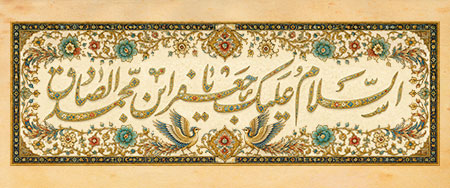 السلام علیک یا جعفر ابن محمد الصادق